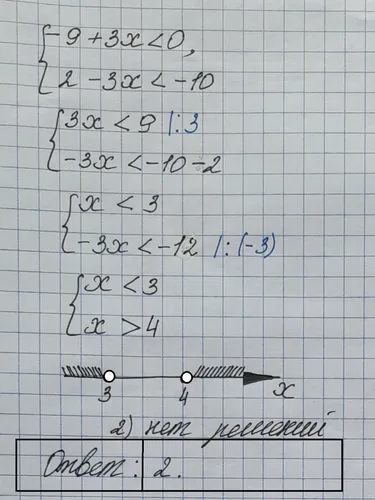 -9+3x<0,
2-3x<-10
3x<9 |:3
-3x<-10-2
x<3
-3x<-12 |:(-3)
x<3
x>4
3 4 x
2) нет решений
Ответ: 2.